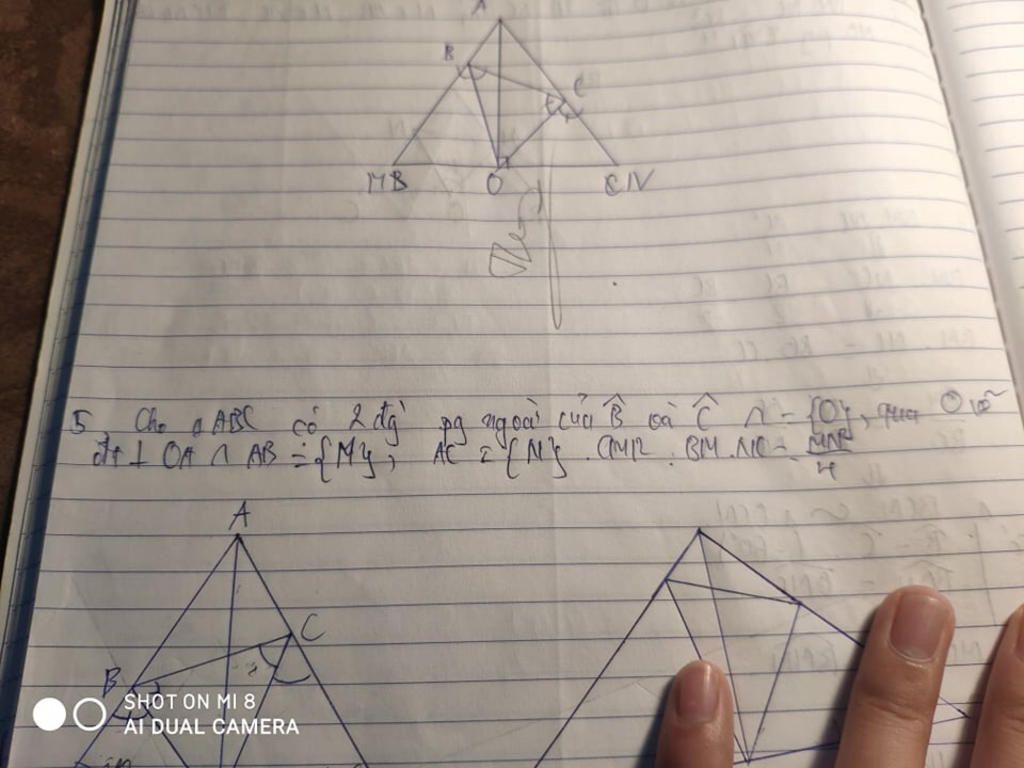 A
B
C
MB O CN
5, Cho △ABC có 2 đg pg ngoài của B̂ và Ĉ ∩ = {O}, qua O vẽ
đt ⊥ OA ∩ AB = {M}, AC = {N}. CMR: BM.NC = MN²/4
A
C
B
SHOT ON MI 8
AI DUAL CAMERA